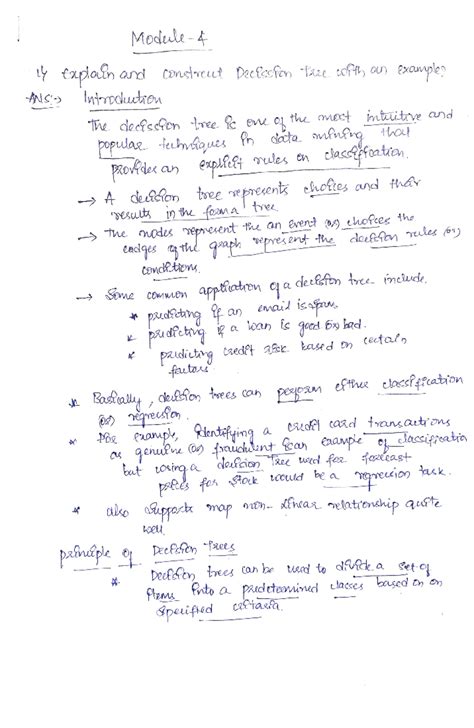 Module-4
1) Explain and construct Decission Tree with an example?
Ans:-> Introduction
The decission tree is one of the most intuitive and
popular techniques in data mining that
provides an explicit rules on classification.
→ A decision tree represents choices and their
results in the form a tree.
→ The nodes represent the an event (or) choices the
endges of the graph represent the decision rules (or)
conditions.
→ Some common application of a decision tree include.
* predicting if an email is spam.
* predicting if a loan is good or bad.
* predicting credit risk based on certain
factors
* Basically, decision trees can perform either classification
(or) regression.
* For example, identifying a credit card transactions
as genuine (or) fraudulent is an example of classification
but using a decision tree used for forecast
prices for stock would be a regression task.
* also supports map non-linear relationship quite
well.
principle of Decision Trees
* Decision trees can be used to divide a set of
items into a predetermined classes based on on
specified criteria.